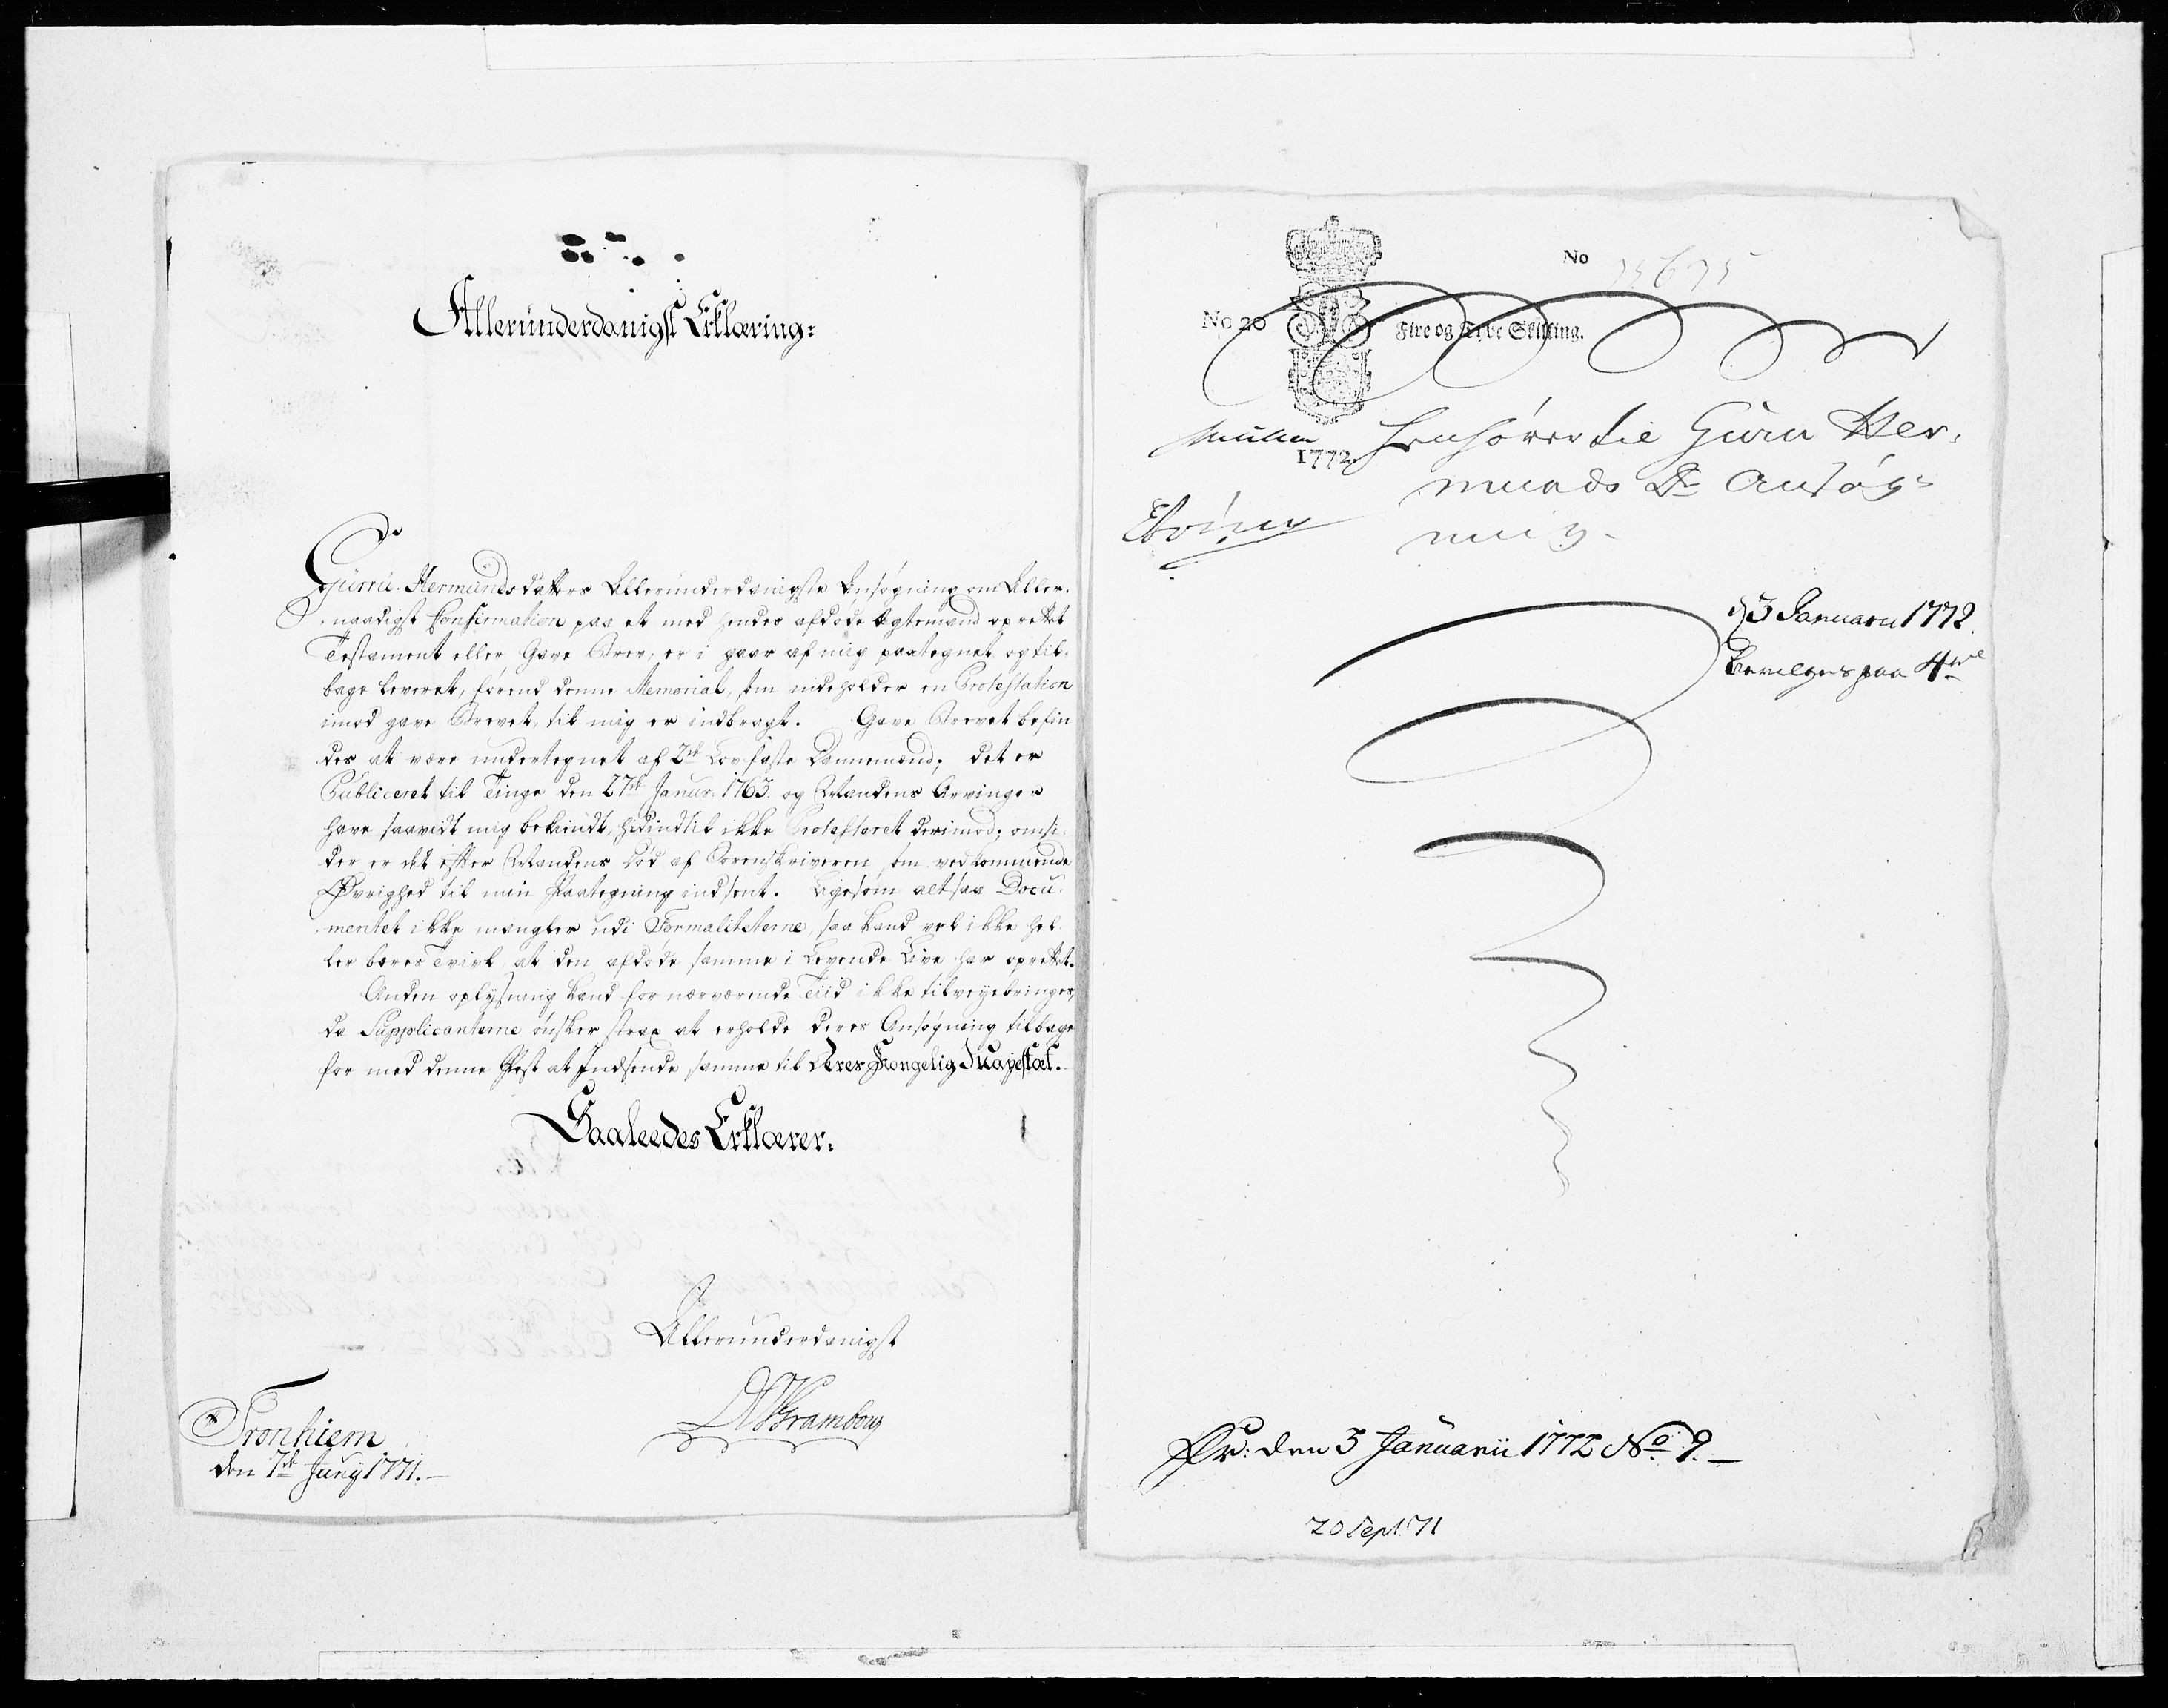 Allerunderdanigst Erklæring:
Gurru Hermunds datters Allerunderdanigste Ansøgning om Aller-
naadigst Confirmation paa et med hendes afdøde Egtemand oprettet
Testament eller Gave Brev, er i gaar af mig paategnet og til-
bage leveret, førend denne Memorial, som indeholder en Protestation
imod gave Brevet, til mig er indbragt. Gave Brevet befin
des at være undertegnet af 2de Lovfaste Dannemænd; det er
Publiceret til Tinge den 27de Januar: 1763. og Mandens Arvinger
have saavidt mig bekiendt, hidindtil ikke Protesteret derimod; omsi-
der er det efter Mandens Død af Sorenskriveren som vedkommende
Øvrighed til min Paategning indsent. Ligesom altsaa Docu-
mentet ikke mangler udi Formaliteterne, saa kand vel ikke hel-
ler bæres Tvivl at den afdøde samme i Levende Live har oprettet.
Anden oplysning kand for nærværende Tiid ikke tilveyebringes,
da Supplicanterne ønsker strax at erholde deres Ansøgning tilbage
for med denne Post at Indsende samme til Deres Kongelig Mayestæt.
Saaleedes Erklærer.
Allerunderdanigst
Tronhiem
den 7de Juny 1771.
No
No 20 Fire og Tyve Skilling.
1772. Henhører til Guru Her-
munds Dr Ansøg-
ning.
d 3 Januarii 1772.
Bevilges paa 4
Pr: den 3 Januarii 1772 No 9.
20 Sept 71